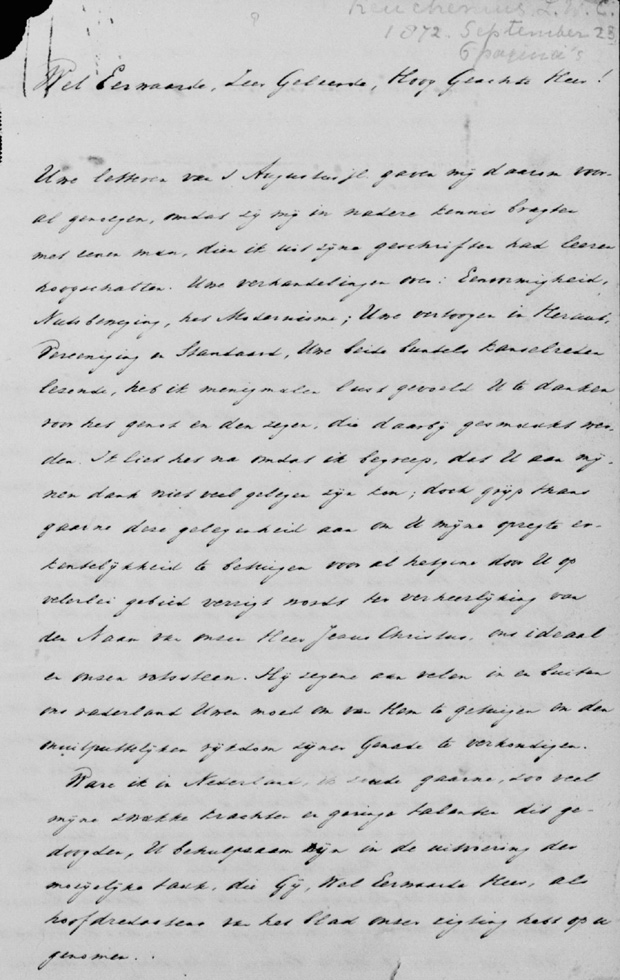 Keuchenius, L.W.C.
1872. September 23
6 pagina's
?
Wel Eerwaarde, Zeer Geleerde, Hoog Geachte Heer!
Uwe letteren van 5 Augustus jl. gaven mij daarom voor-
al genoegen, omdat zij mij in nadere kennis bragten
met eenen man, dien ik uit zijne geschriften had leeren
hoogschatten. Uwe verhandelingen over: Eenvormigheid,
Nutsbeweging, het Modernisme; Uwe vertoogen in Heraut,
Vereeniging en Standaard, Uwe beide bundels kanselreden
lezende, heb ik menigmalen lust gevoeld U te danken
voor het genot en den zegen, die daarbij gesmaakt wer-
den. Ik liet het na omdat ik begreep, dat U aan mij-
nen dank niet veel gelegen zijn kon; doch grijp thans
gaarne deze gelegenheid aan om U mijne opregte er-
kentelijkheid te betuigen voor al hetgene door U op
velerlei gebied verrigt wordt ter verheerlijking van
den Naam van onzen Heer Jezus Christus, ons ideaal
en onzen rotssteen. Hij zegene aan velen in en buiten
ons vaderland Uwen moed om van Hem te getuigen en den
onuitputtelijken rijkdom zijner Genade te verkondigen.
Ware ik in Nederland, ik zoude gaarne, zoo veel
mijne zwakke krachten en geringe talenten dit ge-
doogden, U behulpzaam zijn in de uitvoering der
moeijelijke taak, die Gij, Wel Eerwaarde Heer, als
hoofdredacteur van het blad onzer rigting hebt op u
genomen.